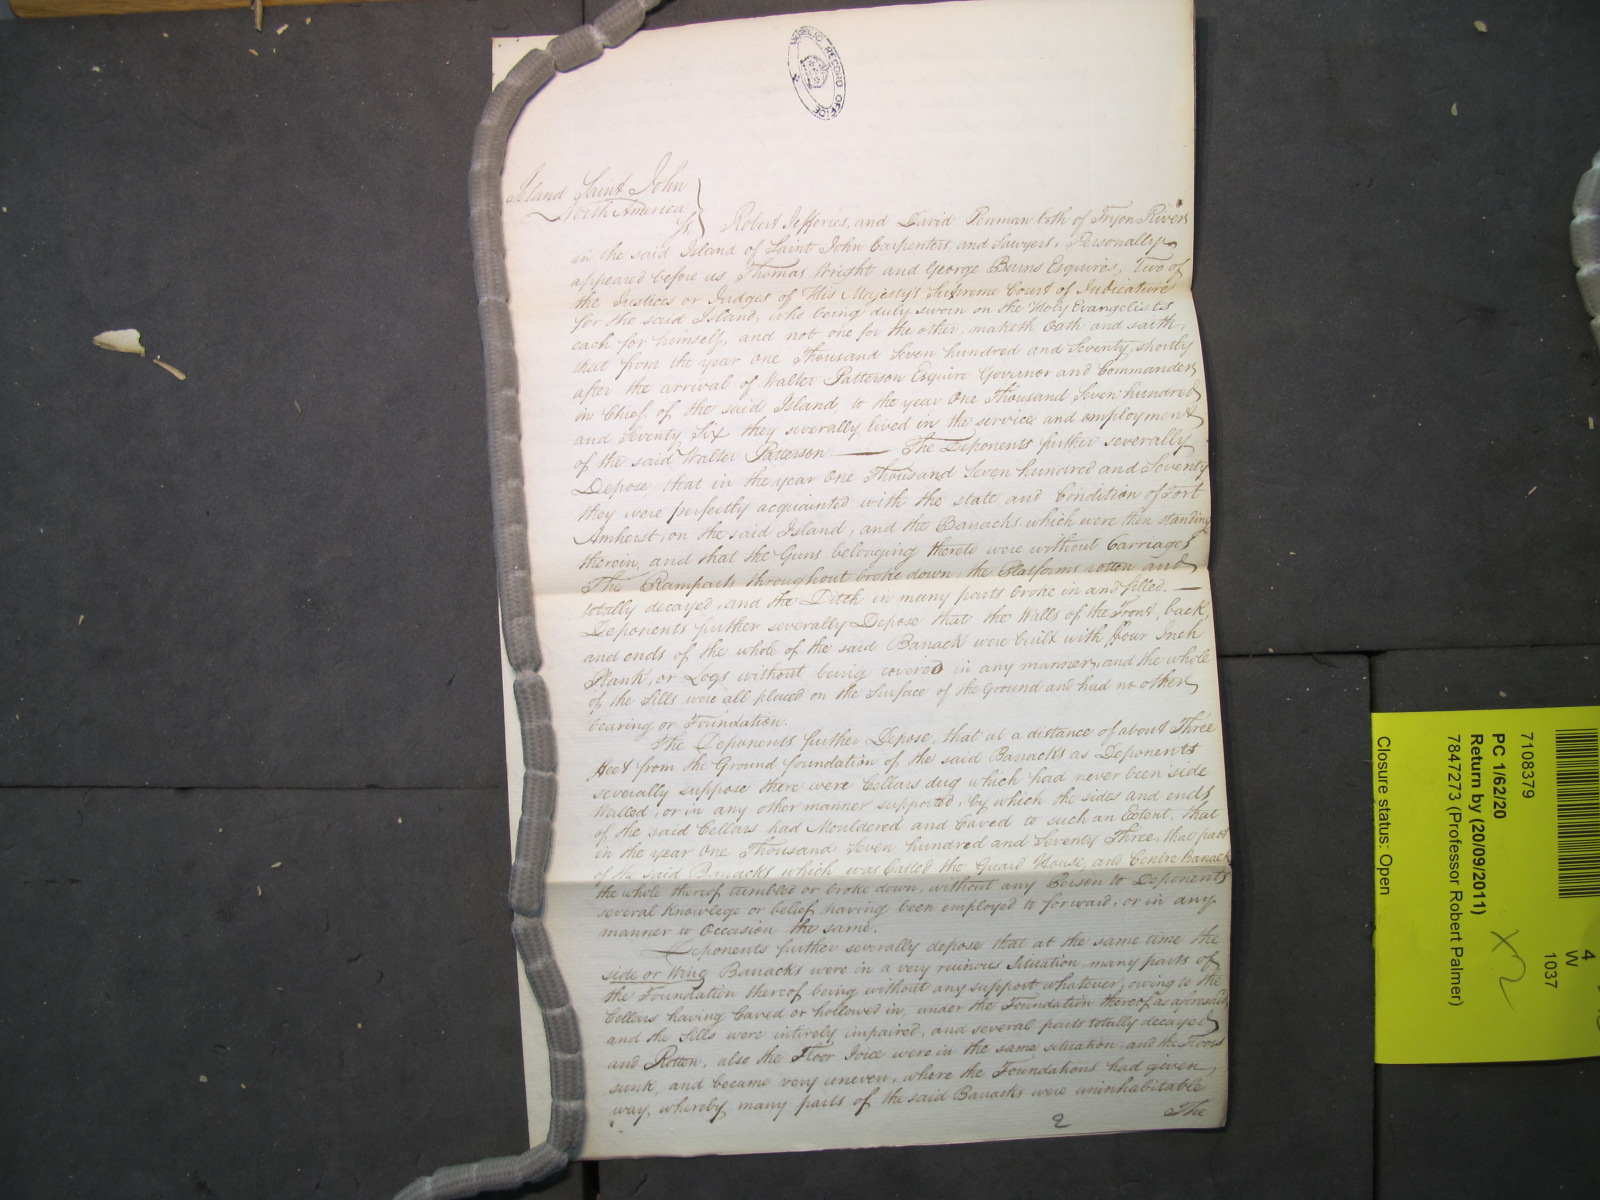 PUBLIC RECORD OFFICE
Island Saint John
North America
Ss. Robert Jefferies, and David Penman both of Tryon River
in the said Island of Saint John Carpenters and Sawyers, Personally
appeared before us Thomas Wright and George Burns Esquires, Two of
the Justices or Judges of His Majesty's Supreme Court of Judicature
for the said Island, who being duly sworn on the Holy Evangelists
each for himself, and not one for the other, maketh Oath and saith,
that from the year One Thousand Seven hundred and Seventy, shortly
after the arrival of Walter Patterson Esquire Governor and Commander
in Chief of the said Island, to the year One Thousand Seven hundred
and Seventy Six they severally lived in the service and employment
of the said Walter Patterson — The Deponents further severally
Depose that in the year One Thousand Seven hundred and Seventy
they were perfectly acquainted with the state and Condition of Fort
Amherst, on the said Island, and the Barracks which were then standing
therein, and that the Guns belonging thereto were without Carriages
The Ramparts throughout broke down, the Platforms rotten and
totally decayed, and the Ditch in many parts broke in and filled. —
Deponents further severally Depose that the Walls of the Front, back,
and ends of the whole of the said Barrack were built with four Inch
Plank, or Logs without being covered in any manner, and the whole
of the Sills were all placed on the Surface of the Ground and had no other
bearing or Foundation.
The Deponents further Depose, that at a distance of about Three
Feet from the Ground foundation of the said Barracks as Deponents
severally suppose there were Cellars dug which had never been side
Walled, or in any other manner supported, by which the sides and ends
of the said Cellars had Mouldered and Caved to such an Extent, that
in the year One Thousand Seven hundred and Seventy Three, that part
of the said Barracks which was Called the Guard House, and Centre Barrack
the whole thereof tumbled or broke down, without any Person to Deponents
several Knowlege or belief having been employed to forward, or in any
manner to Occasion the same.
Deponents further severally depose that at the same time the
side or Wing Barracks were in a very ruinous Situation, many parts of
the Foundation thereof being without any support whatever, owing to the
Cellars having Caved or hollowed in, under the Foundation thereof as aforesaid,
and the Sills were intirely impaired, and several parts totally decayed
and Rotten, also the Floor Joice were in the same situation, and the Floors
sunk, and became very uneven, where the Foundations had given,
way, whereby many parts of the said Barracks were uninhabitable
The
2
7108379
PC 1/62/20
Return by (20/09/2011)
7847273 (Professor Robert Palmer)
Closure status: Open
4
W
1037
x2